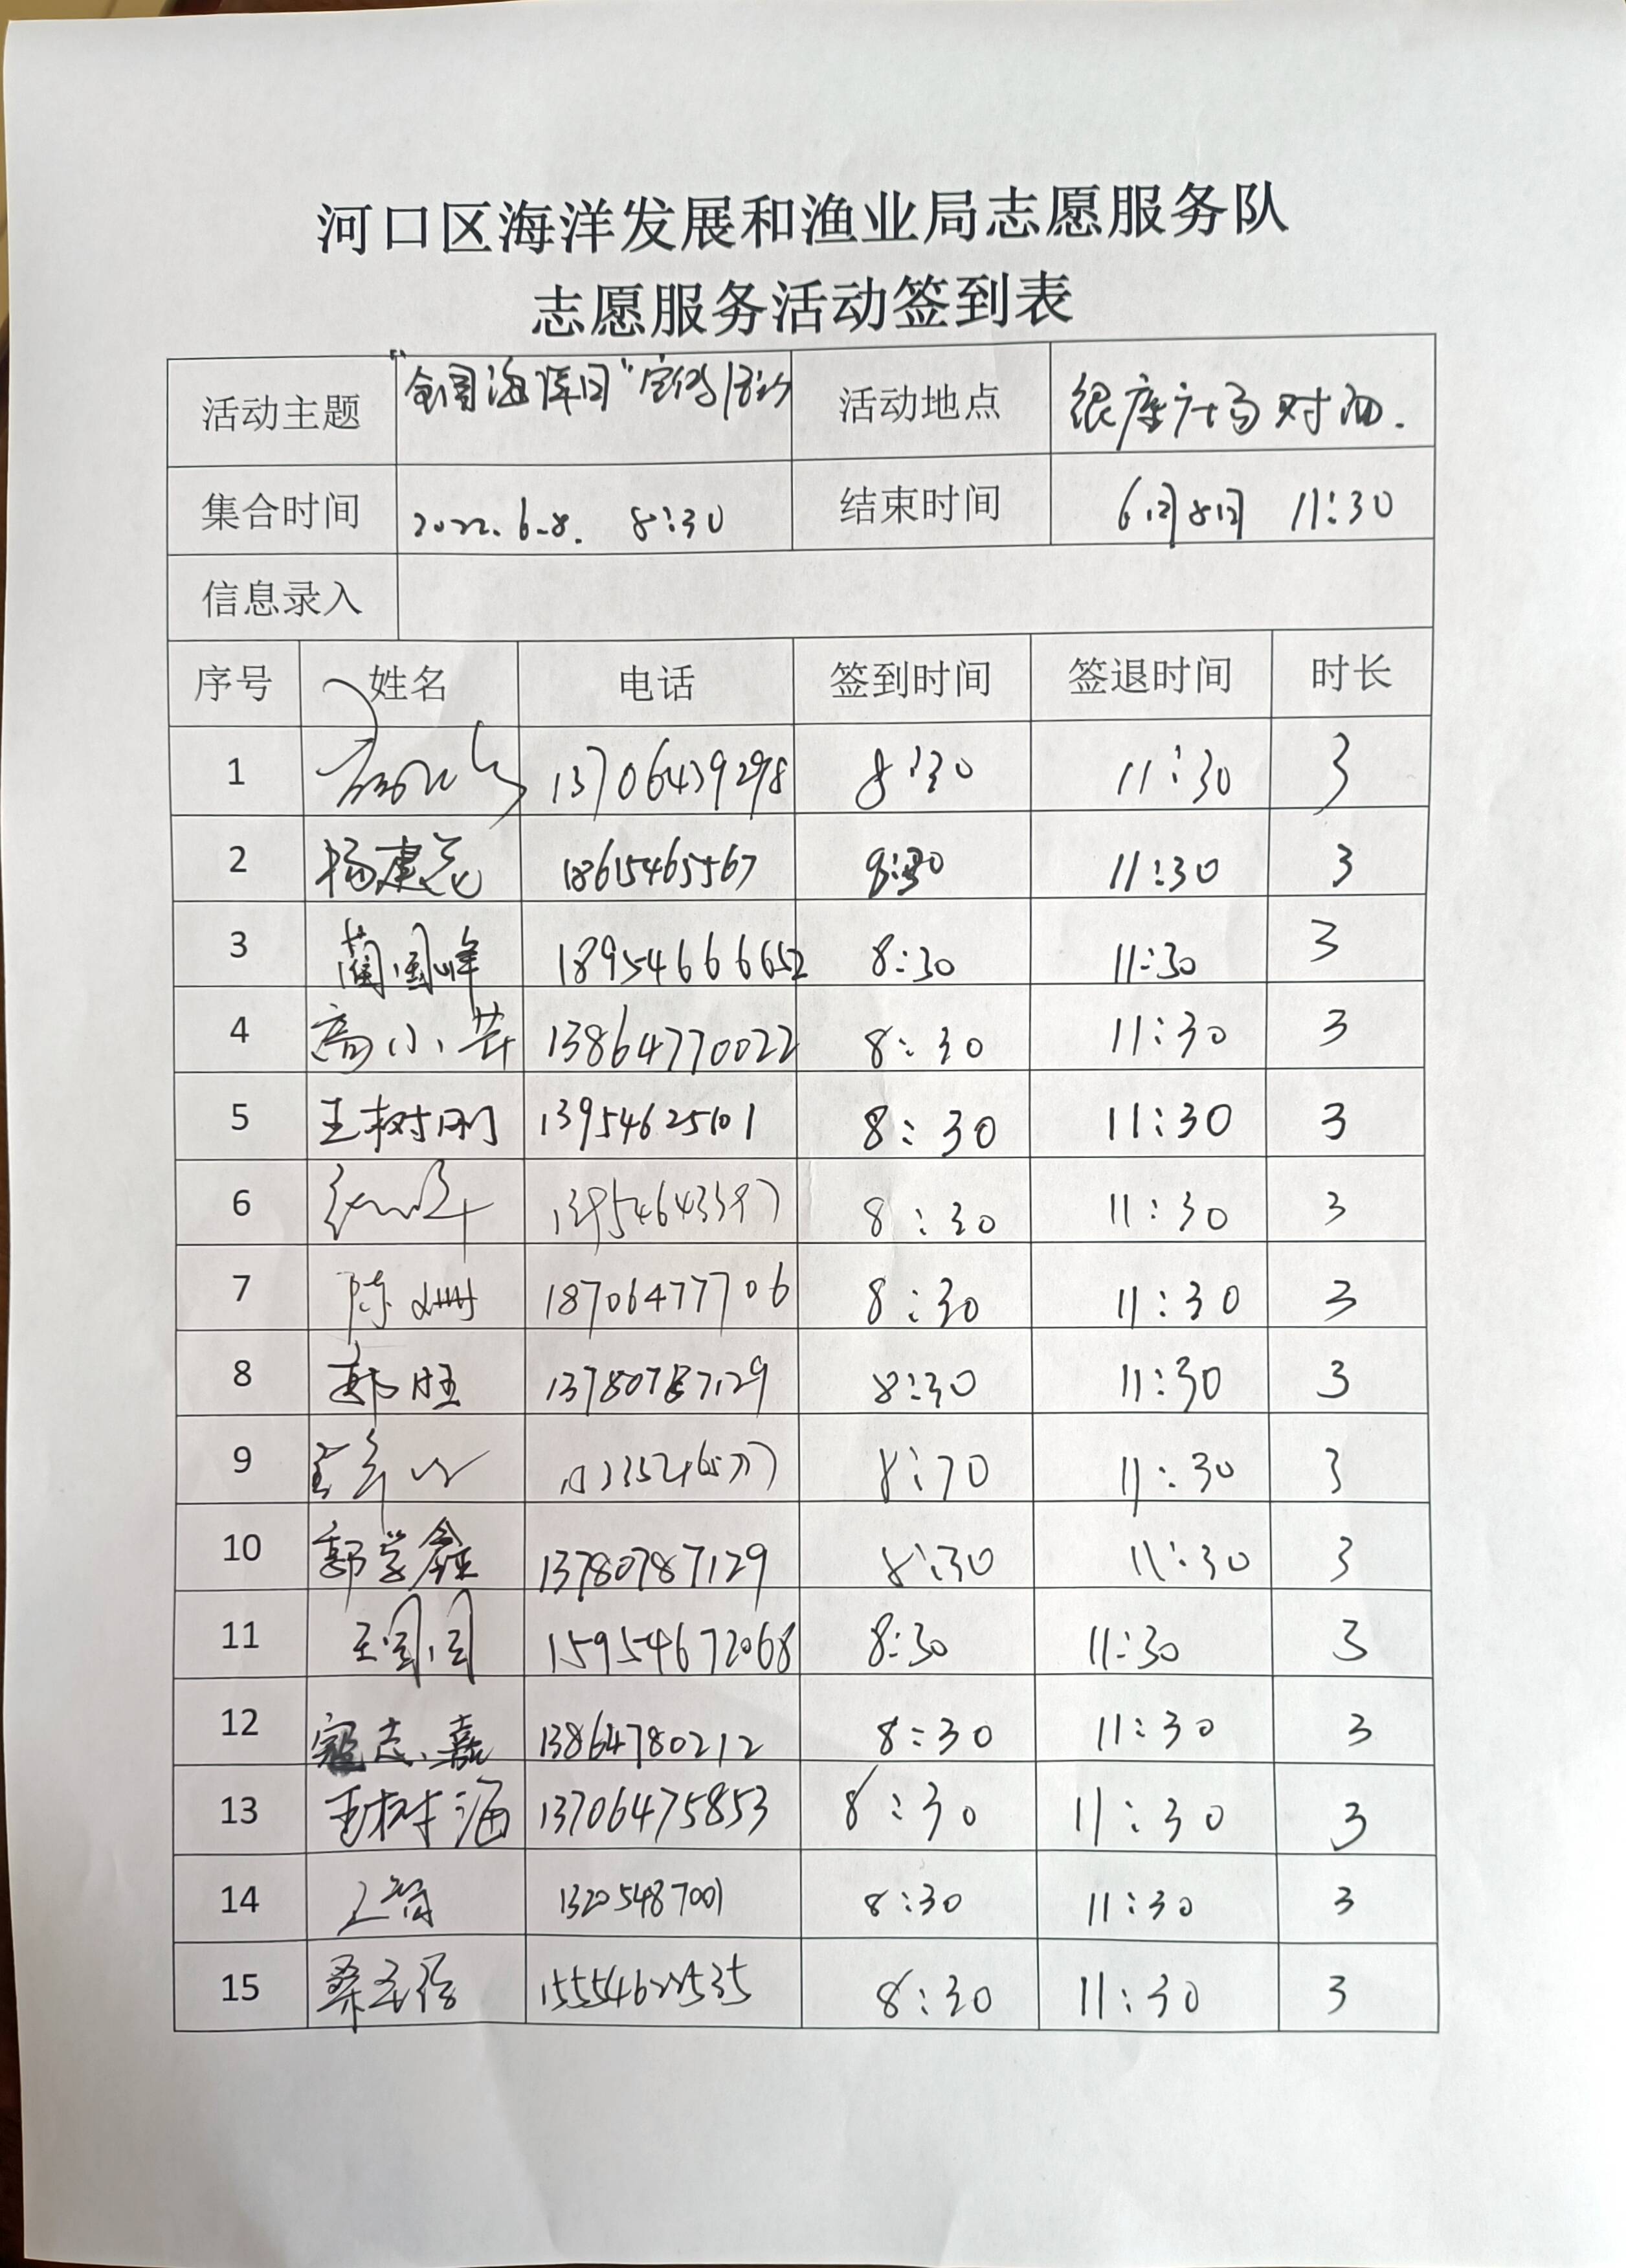 河口区海洋发展和渔业局志愿服务队
志愿服务活动签到表
活动主题 "全国海洋日"宣传活动 活动地点 银座广场对面.
集合时间 2022.6.8. 8:30 结束时间 6月8日 11:30
信息录入
序号 姓名 电话 签到时间 签退时间 时长
1 13706439298 8:30 11:30 3
2 杨建 18615465567 8:30 11:30 3
3 蔺国峰 18954666652 8:30 11:30 3
4 高小芹 13864770022 8:30 11:30 3
5 王树刚 13954625101 8:30 11:30 3
6 13954643397 8:30 11:30 3
7 陈姗姗 18706477706 8:30 11:30 3
8 13780787129 8:30 11:30 3
9 8:30 11:30 3
10 郭学鑫 13780787129 8:30 11:30 3
11 王圆圆 15954672068 8:30 11:30 3
12 寇志嘉 13864780212 8:30 11:30 3
13 王树海 13706475853 8:30 11:30 3
14 13205487001 8:30 11:30 3
15 8:30 11:30 3